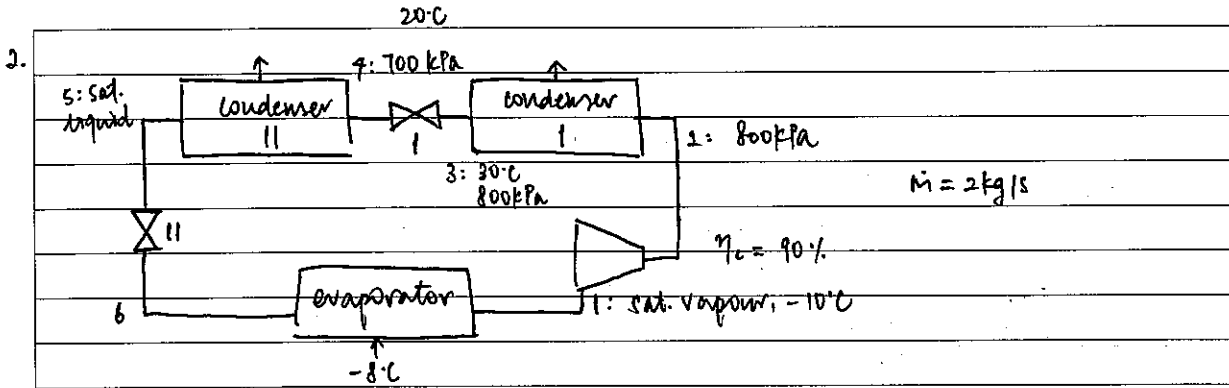 20°C
2.
4: 700 kPa
5: sat. liquid
condenser II
condenser I
I
2: 800kPa
3: 30°C
800kPa
ṁ = 2kg/s
II
η_c = 90%
evaporator
1: sat. vapour, -10°C
6
-8°C